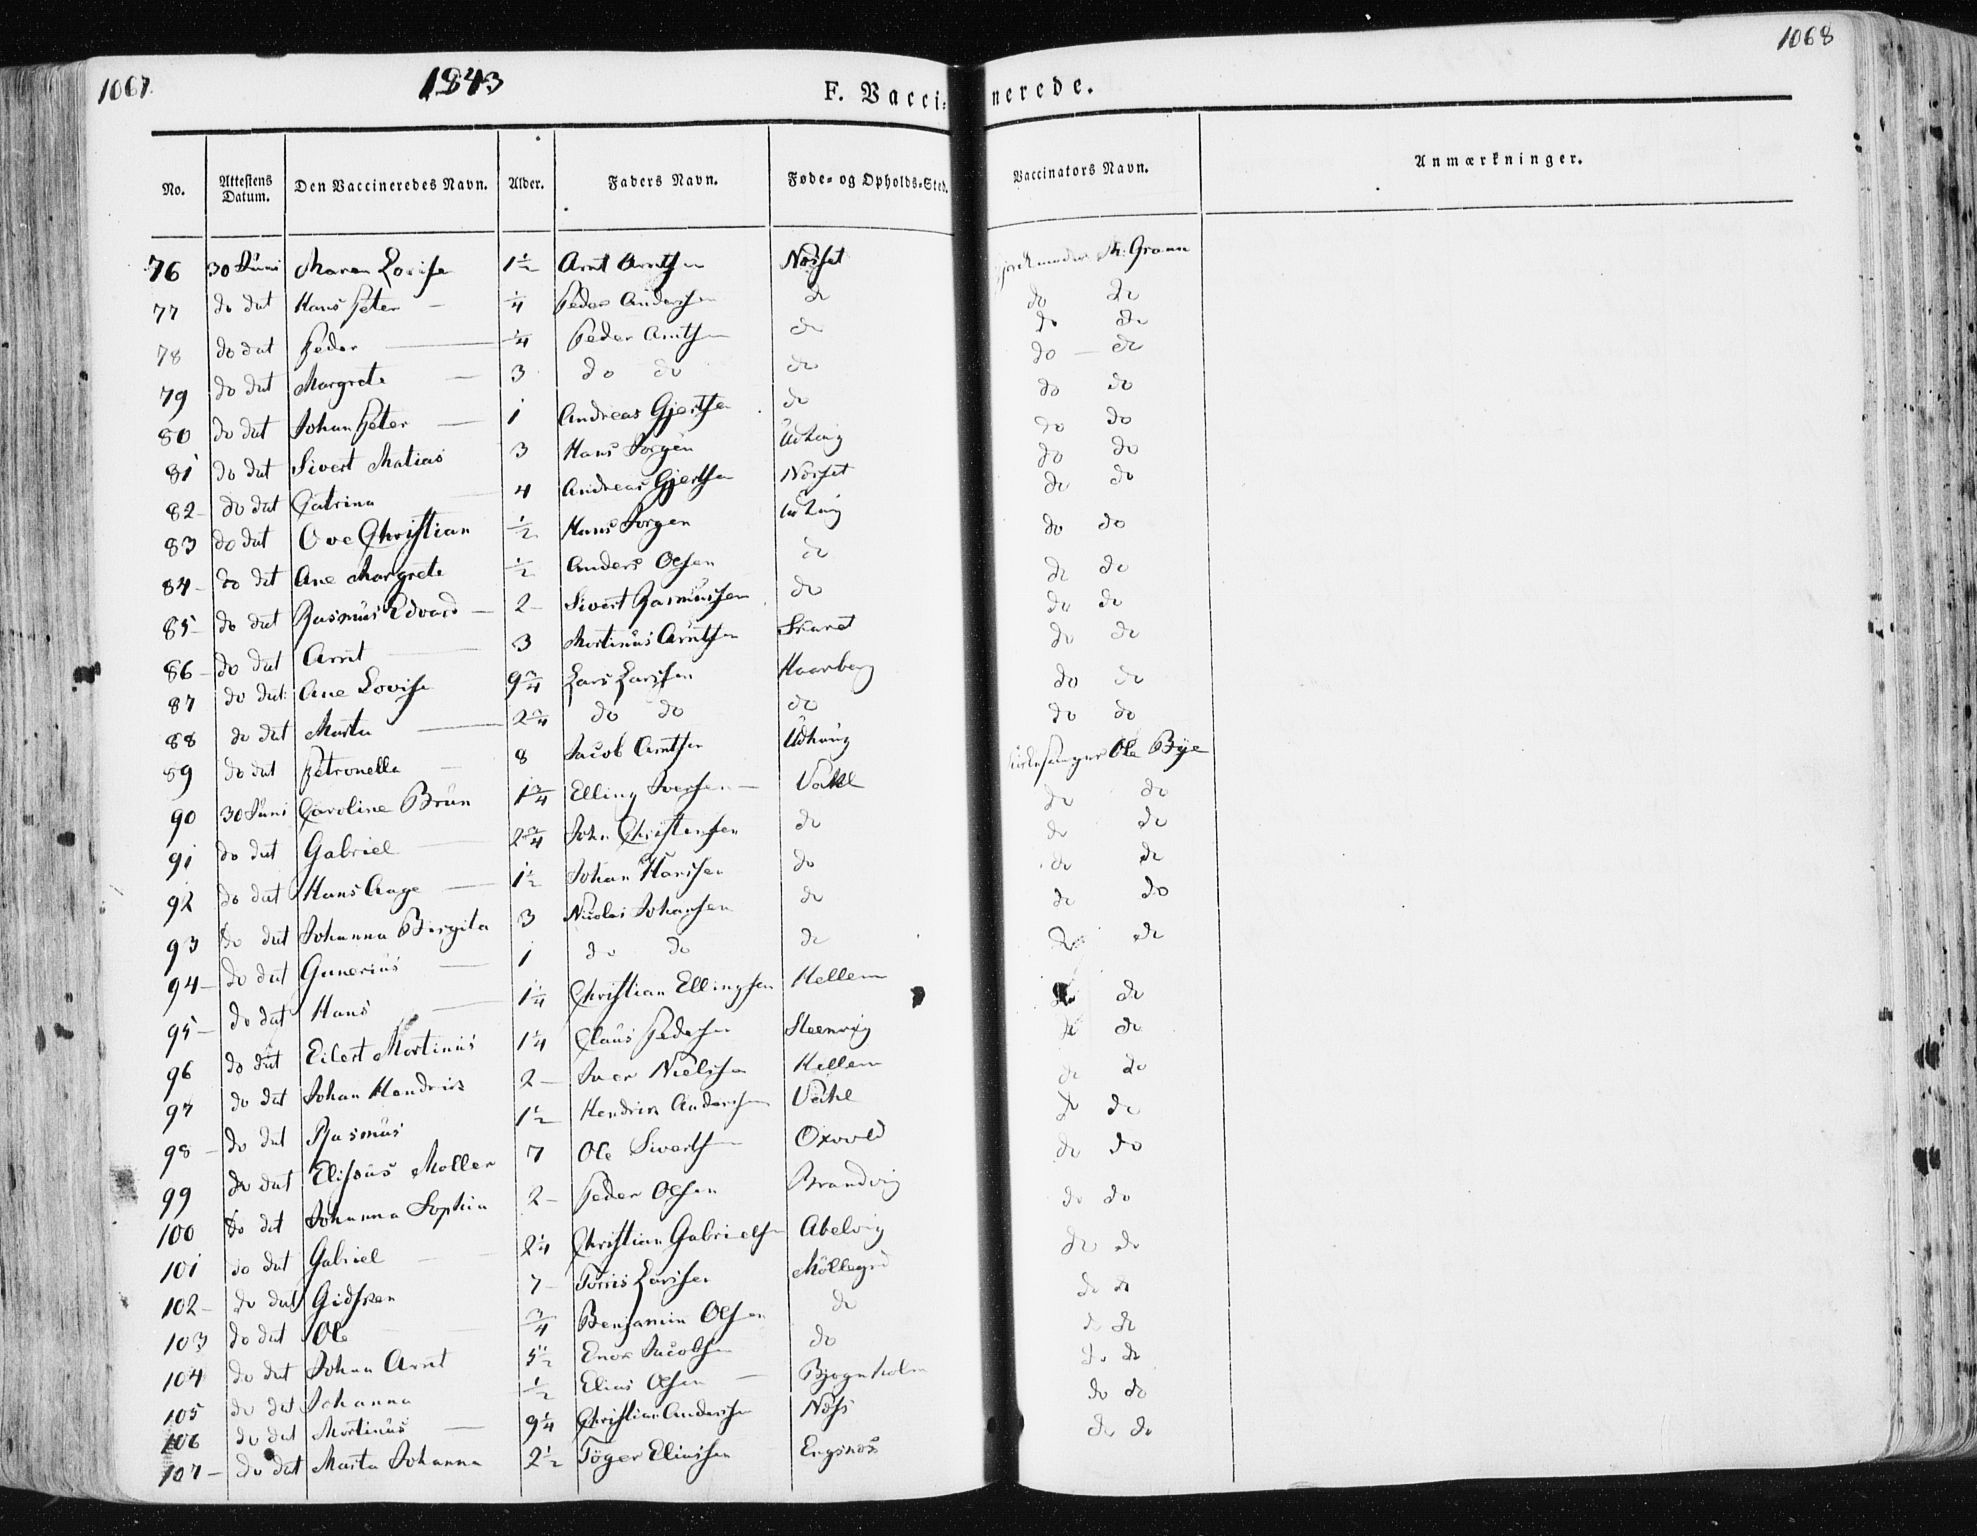 1067. 1843 F. Vaccinerede. 1068
No. Attestens Datum. Den Vaccineredes Navn. Alder. Faders Navn. Føde- og Opholds-Sted. Vaccinators Navn. Anmærkninger.
76 30 Juni Maren Lovise 1 1/2 Arnt Arntsen Nosset Gran
77 do dat Hans Peter — 1/4 Peder Andersen do do do
78 do dat Peder — 1/4 Peder Arntsen do do do
79 do dat Margrete — 3 do do do do — do
80 do dat Johan Peter — 1 Andreas Gjertsen do do do
81 do dat Sivert Matias 3 Hans Jorgen Udhaug do do
82 - do dat Catrina 4 Andreas Gjertsen Nosset do do
83 do dat Ove Christian 1/2 Hans Jorgen Udhaug do do
84 - do dat Ane Margrete 1/2 Anders Olsen do do do
85 - do dat Rasmus Edvard — 2 - Sivert Rasmussen do do do
86 - do dat Arnt — 3 Mortinus Arntsen Skaret do do
87 do dat Ane Lovise 9 3/4 Lars Larssen Haarberg do do
88 do dat Marta — 2 3/4 do do do do do
89 do dat Petronella — 8 Jacob Arntsen Udhaug do do
90 30 Juni Caroline Brun 1 3/4 Elling Iversen — Vakl Kirkesanger Ole Bye
91 do dat Gabriel — 2 3/4 John Christensen do do do
92 do dat Hans Aage — 1 1/2 Johan Hanssen do do do
93 do dat Johanna Birgita 3 Nicolai Johansen do do do
94 - do dat Gunerius — 1 do do do do do
95 - do dat Hans — 1 1/4 Christian Ellingsen Hellem do do
96 do dat Eilert Mortinus 1 1/4 Claus Pedersen Steenvig do do
97 do dat Johan Hendrik 2 — Iver Nielsen Hellem do do
98 - do dat Rasmus 1 1/2 Hendrik Andersen Vakl do do
99 do dat Elisæus Moller 7 Ole Sivertsen Oxvold do do
100 do dat Johanna Sophia 2 - Peder Olsen Brandvig do do
101 do dat Gabriel — 2 1/4 Christian Gabrielsen Abelvig do do
102 - do dat Gidsken 7 - Torris Larssen do do
103 do dat Ole 3/4 Benjamin Olsen do do do
104 do dat Johan Arnt 5 1/2 Enok Jacobsen do do do
105 do dat Johanna 1/2 Elias Olsen — Bjognholm do do
106 do dat Mortinus — 9 1/4 Christian Andersen Næss do do
107 - do dat Marta Johanna 2 1/2 Töger Eliassen do do